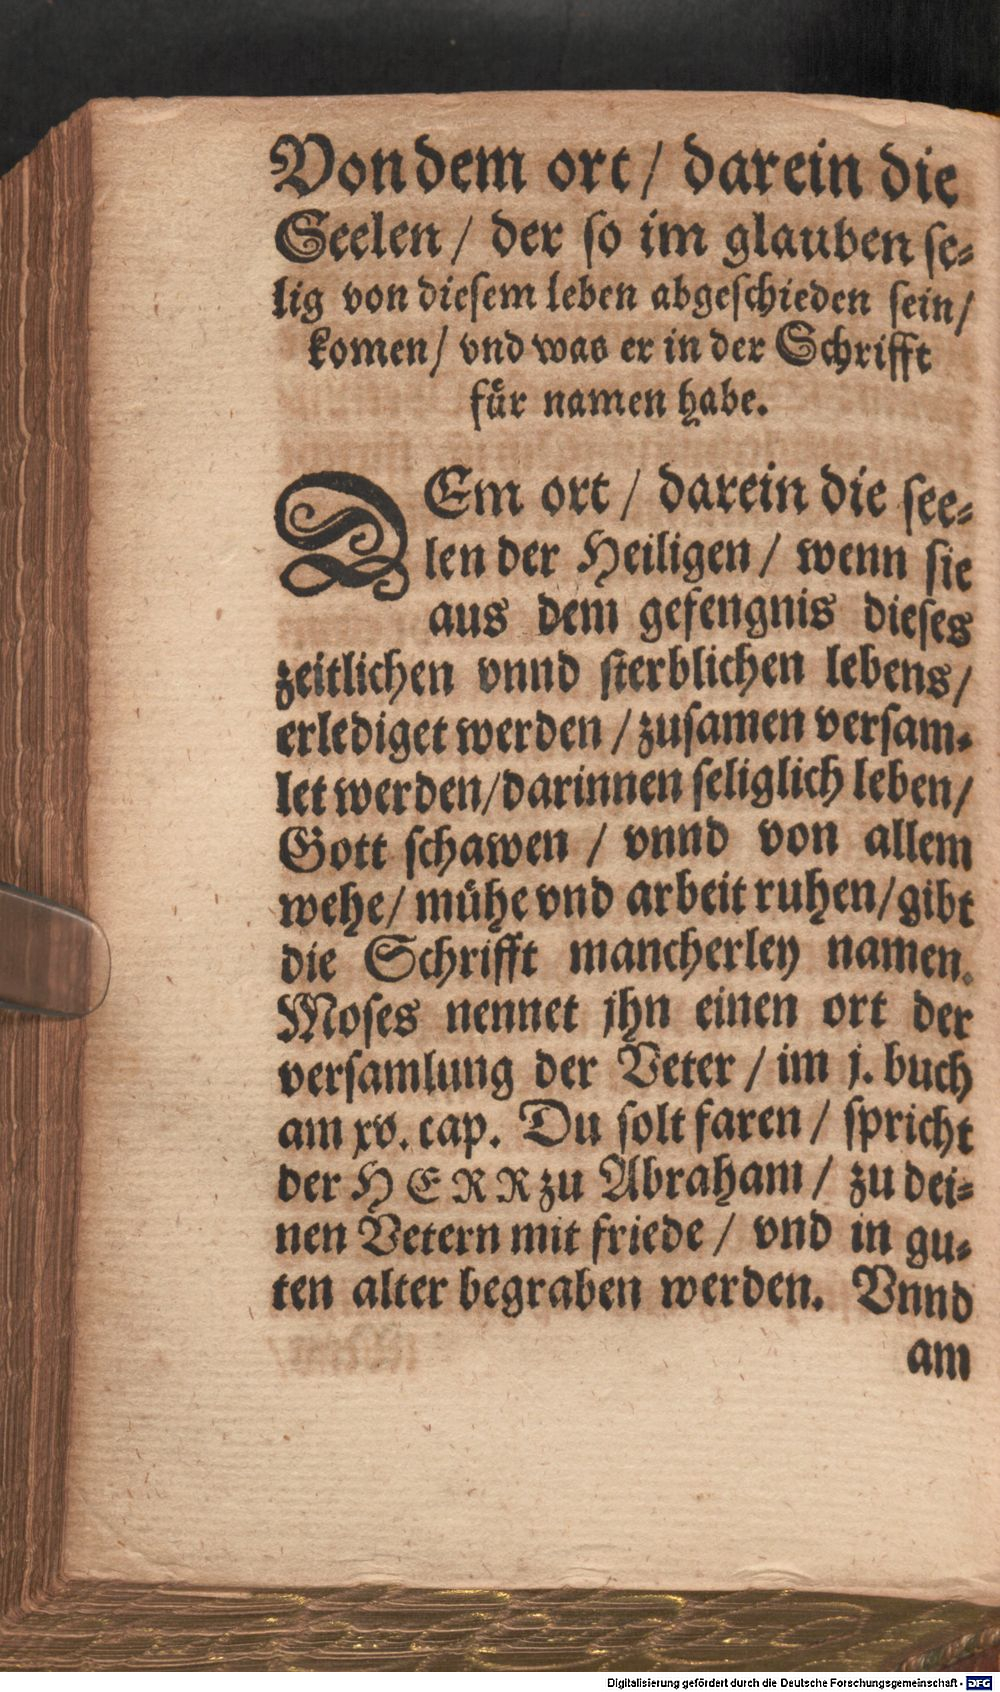 Von dem ort / darein die
Seelen / der so im glauben se⸗
lig von diesem leben abgeschieden sein /
komen / vnd was er in der Schrifft
fuͤr namen habe.
DEm ort / darein die see⸗
len der Heiligen / wenn sie
aus dem gefengnis dieses
zeitlichen vnnd sterblichen lebens /
erlediget werden / zusamen versam⸗
let werden / darinnen seliglich leben /
Gott schawen / vnnd von allem
wehe / muͤhe vnd arbeit ruhen / gibt
die Schrifft mancherley namen.
Moses nennet jhn einen ort der
versamlung der Veter / im j. buch
am xv. cap. Du solt faren / spricht
der HERR zu Abraham / zu dei⸗
nen Vetern mit friede / vnd in gu⸗
ten alter begraben werden. Vnnd
am
Digitalisierung gefördert durch die Deutsche Forschungsgemeinschaft - DFG